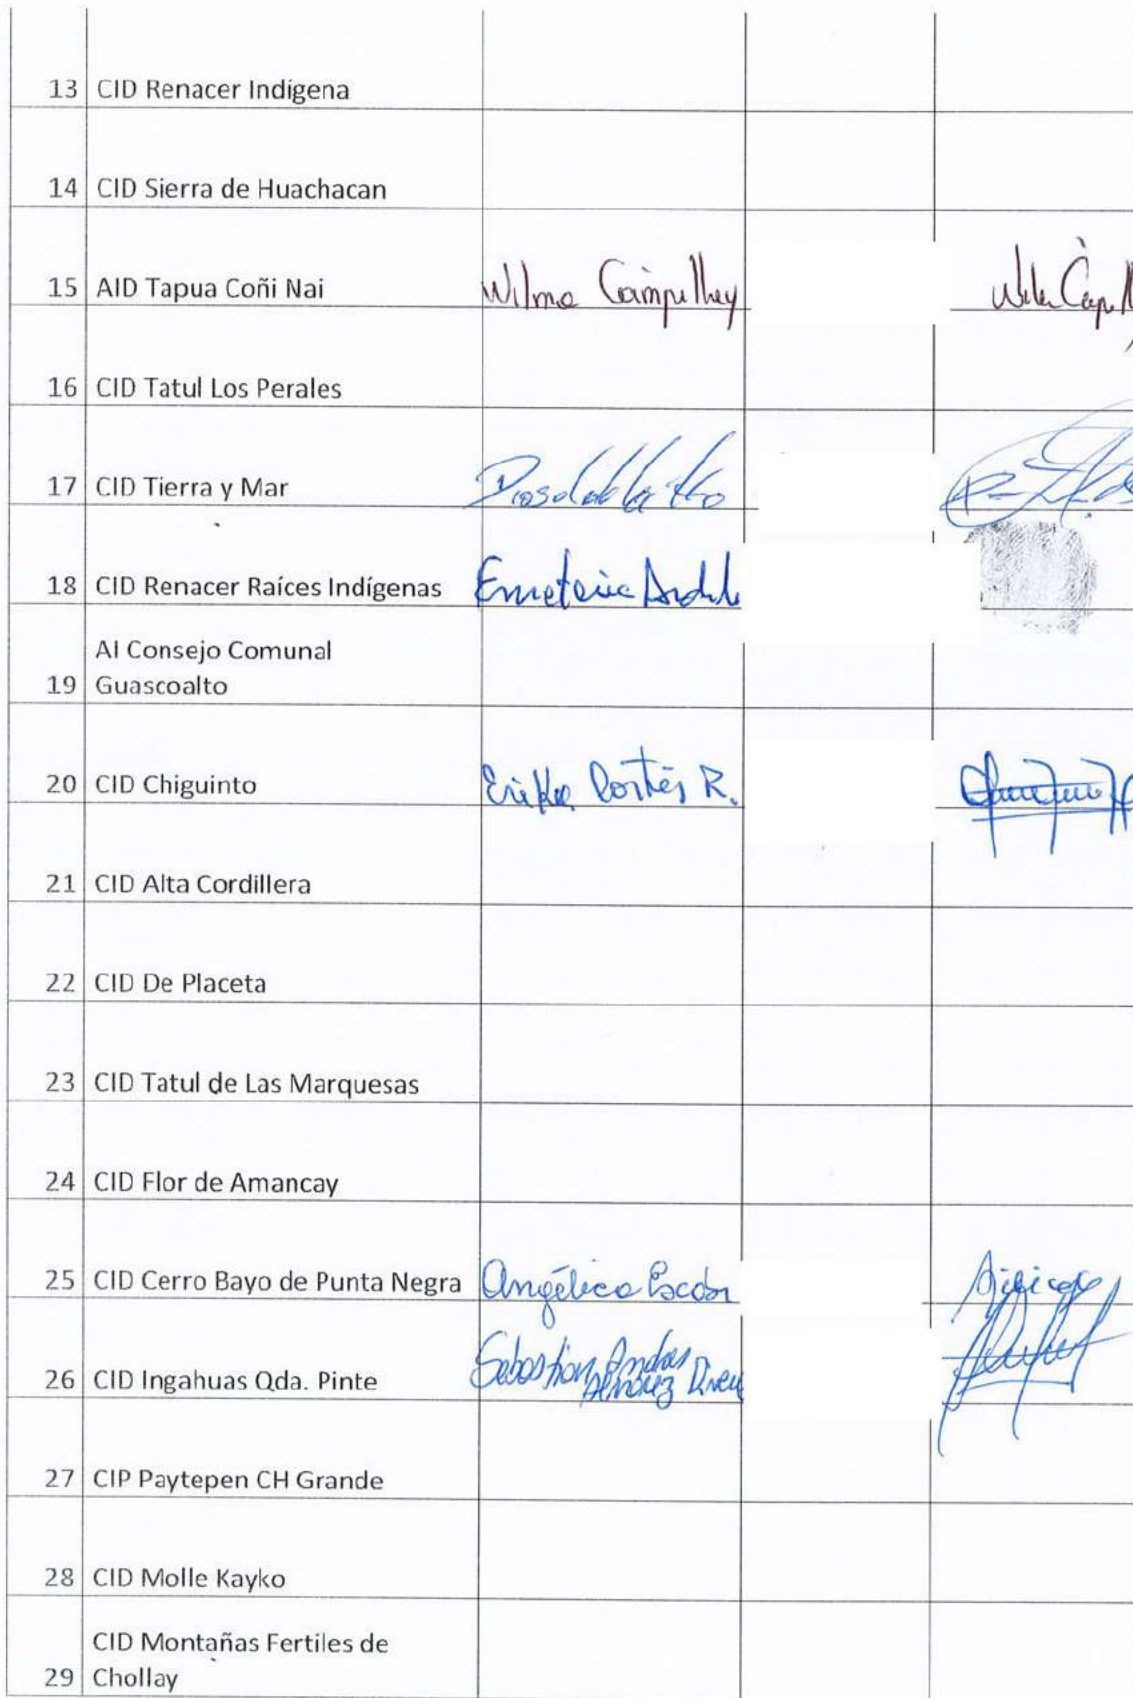 13 CID Renacer Indígena
14 CID Sierra de Huachacan
15 AID Tapua Coñi Nai Wilma Campillay
16 CID Tatul Los Perales
17 CID Tierra y Mar
18 CID Renacer Raíces Indígenas Emeteria
AI Consejo Comunal
19 Guascoalto
20 CID Chiguinto Erika Cortés R.
21 CID Alta Cordillera
22 CID De Placeta
23 CID Tatul de Las Marquesas
24 CID Flor de Amancay
25 CID Cerro Bayo de Punta Negra Angélica Escobar
26 CID Ingahuas Qda. Pinte Sebastian Andres
27 CIP Paytepen CH Grande
28 CID Molle Kayko
CID Montañas Fertiles de
29 Chollay